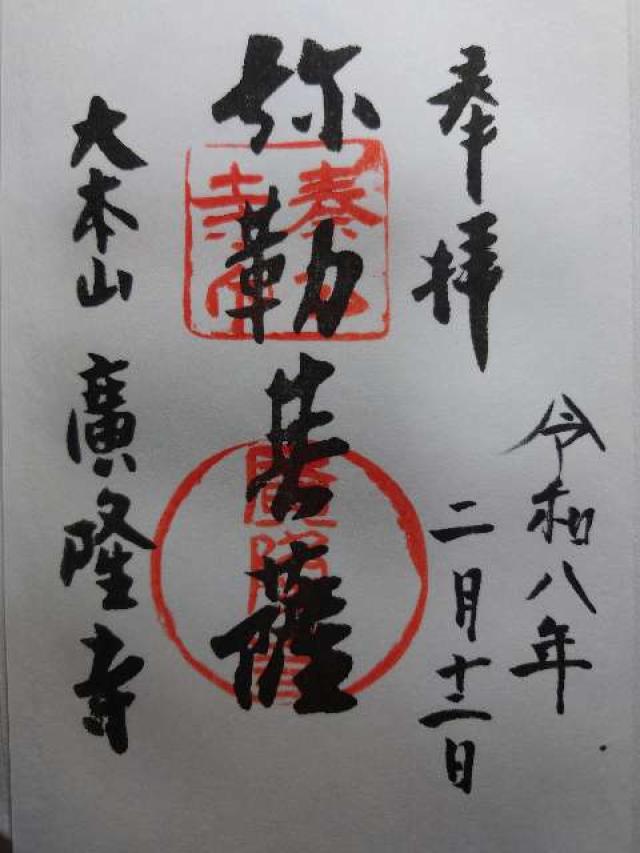 奉拝
令和八年
二月十二日
弥勒菩薩
大本山 廣隆寺